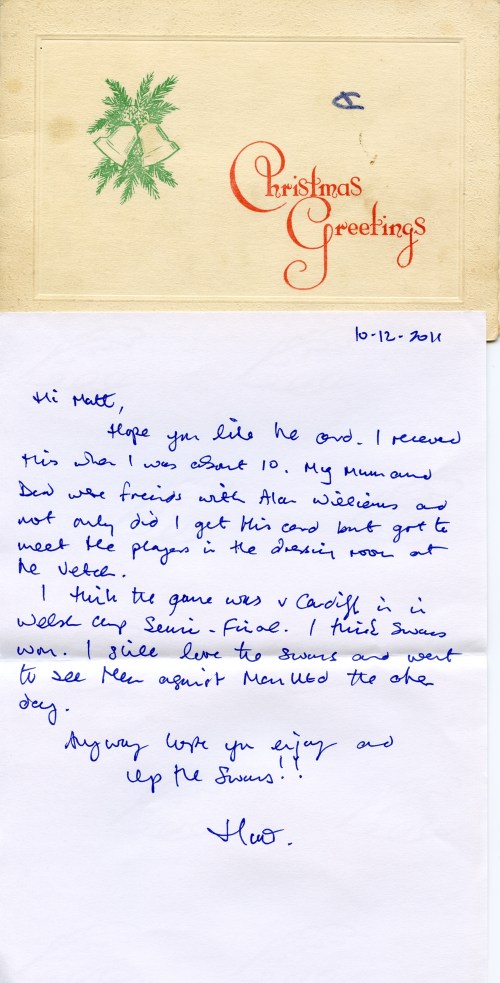 Christmas
Greetings
10-12-2011
Hi Matt,
Hope you like the card. I received
this when I was about 10. My Mum and
Dad were freinds with Alan Williams and
not only did I get this card but got to
meet the players in the dressing room at
the Vetch.
I think the game was v Cardiff in
Welsh Cup Semi-Final. I think Swans
won. I still love the Swans and went
to see them against Man Utd the other
day.
Anyway hope you enjoy and
up the Swans!!